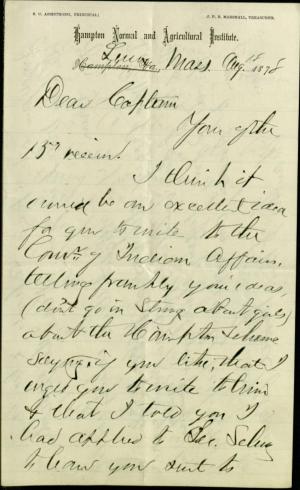 S. C. ARMSTRONG, PRINCIPAL.
J. F. B. MARSHALL, TREASURER.
Hampton Normal and Agricultural Institute.
Hampton, Va. Mass. Aug. 18 1878
Dear Captain
Your of the
15th received.
I think it
would be an excellent idea
for you to write to the
Comr. of Indian Affairs,
telling frankly your ideas,
(don't go in strong about girls)
about the Hampton Scheme
saying if you like, that I
urged you to write to him
& that I told you I
had applied to Sec. Schurz
to have you sent to